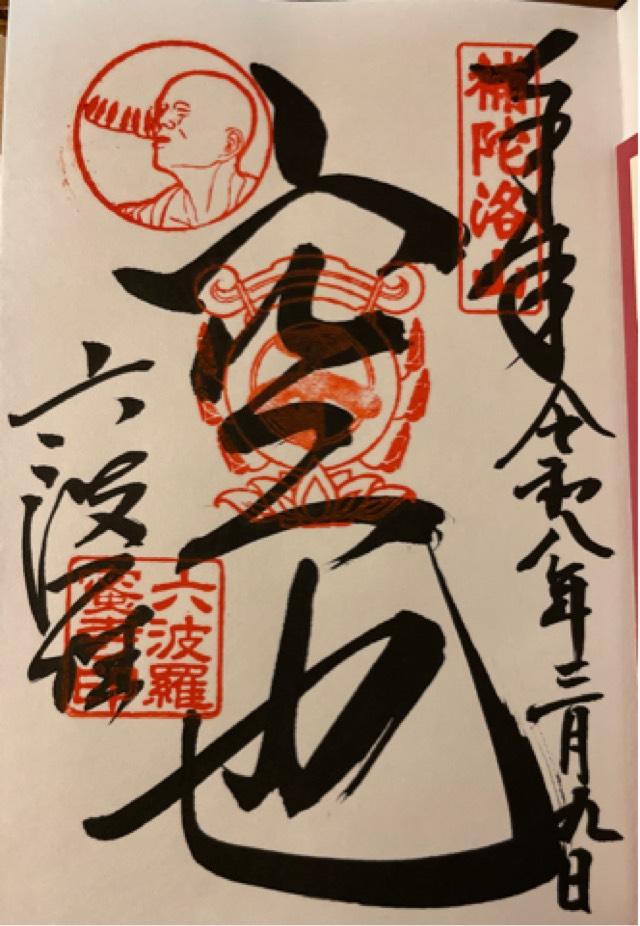 奉拝
補陀洛山
令和八年三月九日
空也
六波羅
六波羅
蜜寺印